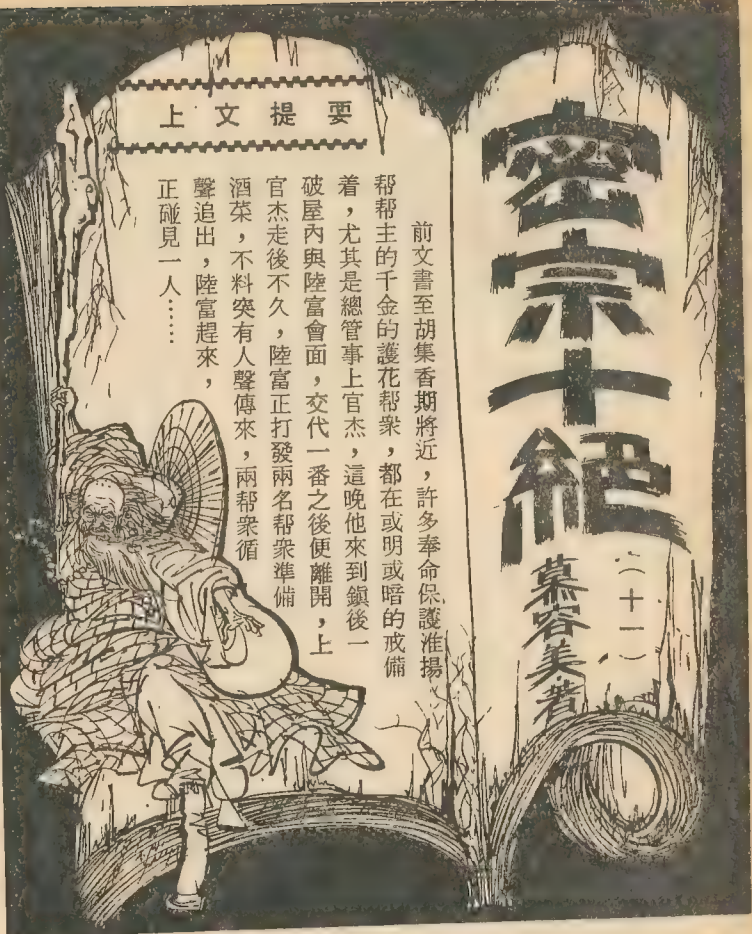 密宗十絕
（十一）
慕容美·著
上文提要
前文書至胡集香期將近，許多奉命保護淮揚
帮帮主的千金的護花帮衆，都在或明或暗的戒備
着，尤其是總管事上官杰，這晚他來到鎭後一
破屋內與陸富會面，交代一番之後便離開，上
官杰走後不久，陸富正打發兩名帮衆準備
酒菜，不料突有人聲傳來，兩帮衆循
聲追出，陸富趕來，
正碰見一人……